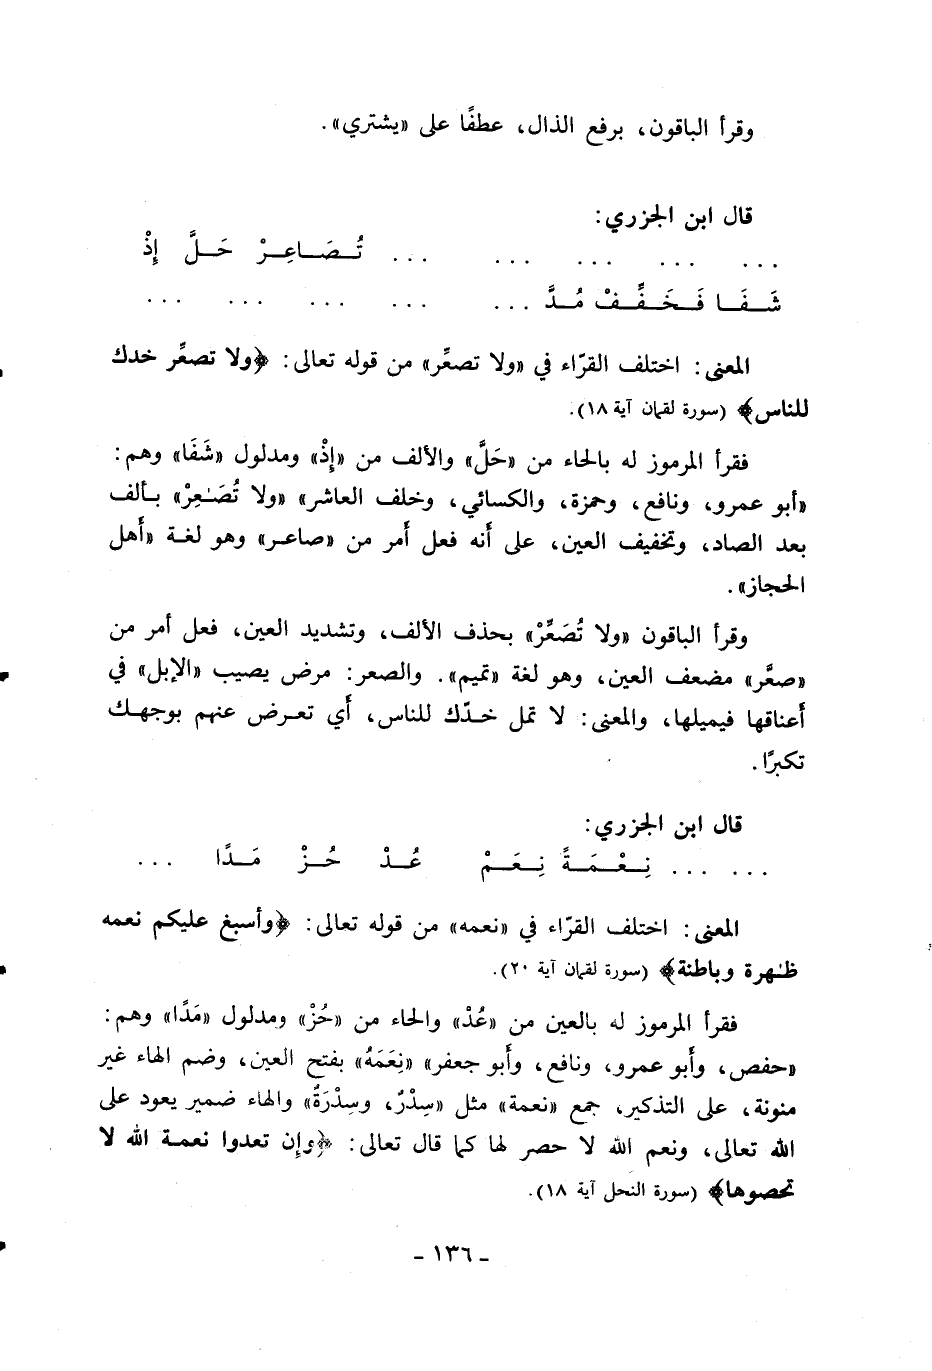 وقرأ الباقون، برفع الذال، عطفًا على «يشتري».
قال ابن الجزري:
... ... ... ... ... تُصَاعِرْ حَلَّ إِذْ
شَفَا فَخَفِّفْ مُدَّ ... ... ... ... ...
المعنى: اختلف القرّاء في «ولا تصعِّر» من قوله تعالى: ﴿ولا تصعِّر خدك
للناس﴾ (سورة لقمان آية ١٨).
فقرأ المرموز له بالحاء من «حَلَّ» والألف من «إِذْ» ومدلول «شَفَا» وهم:
«أبو عمرو، ونافع، وحمزة، والكسائي، وخلف العاشر» «ولا تُصَـٰعِرْ» بألف
بعد الصاد، وتخفيف العين، على أنه فعل أمر من «صاعر» وهو لغة «أهل
الحجاز».
وقرأ الباقون «ولا تُصَعِّرْ» بحذف الألف، وتشديد العين، فعل أمر من
«صعَّر» مضعف العين، وهو لغة «تميم». والصعر: مرض يصيب «الإبل» في
أعناقها فيميلها، والمعنى: لا تمل خدّك للناس، أي تعرض عنهم بوجهك
تكبرًا.
قال ابن الجزري:
... ... ... نِعْمَةً نِعَمْ عُدْ حُزْ مَدًا ...
المعنى: اختلف القرّاء في «نعمه» من قوله تعالى: ﴿وأسبغ عليكم نعمه
ظـٰهرة وباطنة﴾ (سورة لقمان آية ٢٠).
فقرأ المرموز له بالعين من «عُدْ» والحاء من «حُزْ» ومدلول «مَدًا» وهم:
«حفص، وأبو عمرو، ونافع، وأبو جعفر» «نِعَمَهُ» بفتح العين، وضم الهاء غير
منونة، على التذكير، جمع «نعمة» مثل «سِدْرٌ، وسِدْرَةٌ» والهاء ضمير يعود على
الله تعالى، ونعم الله لا حصر لها كما قال تعالى: ﴿وإن تعدوا نعمة الله لا
تحصوها﴾ (سورة النحل آية ١٨).
- ١٣٦ -